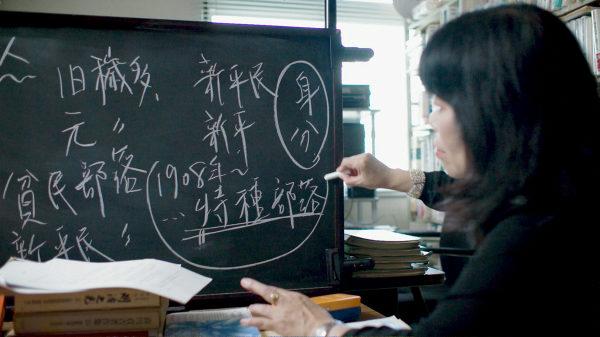 人
旧穢多、
元〃
貧民部落
新平民〃
新平民
新平
身分
1908年~
…特種部落